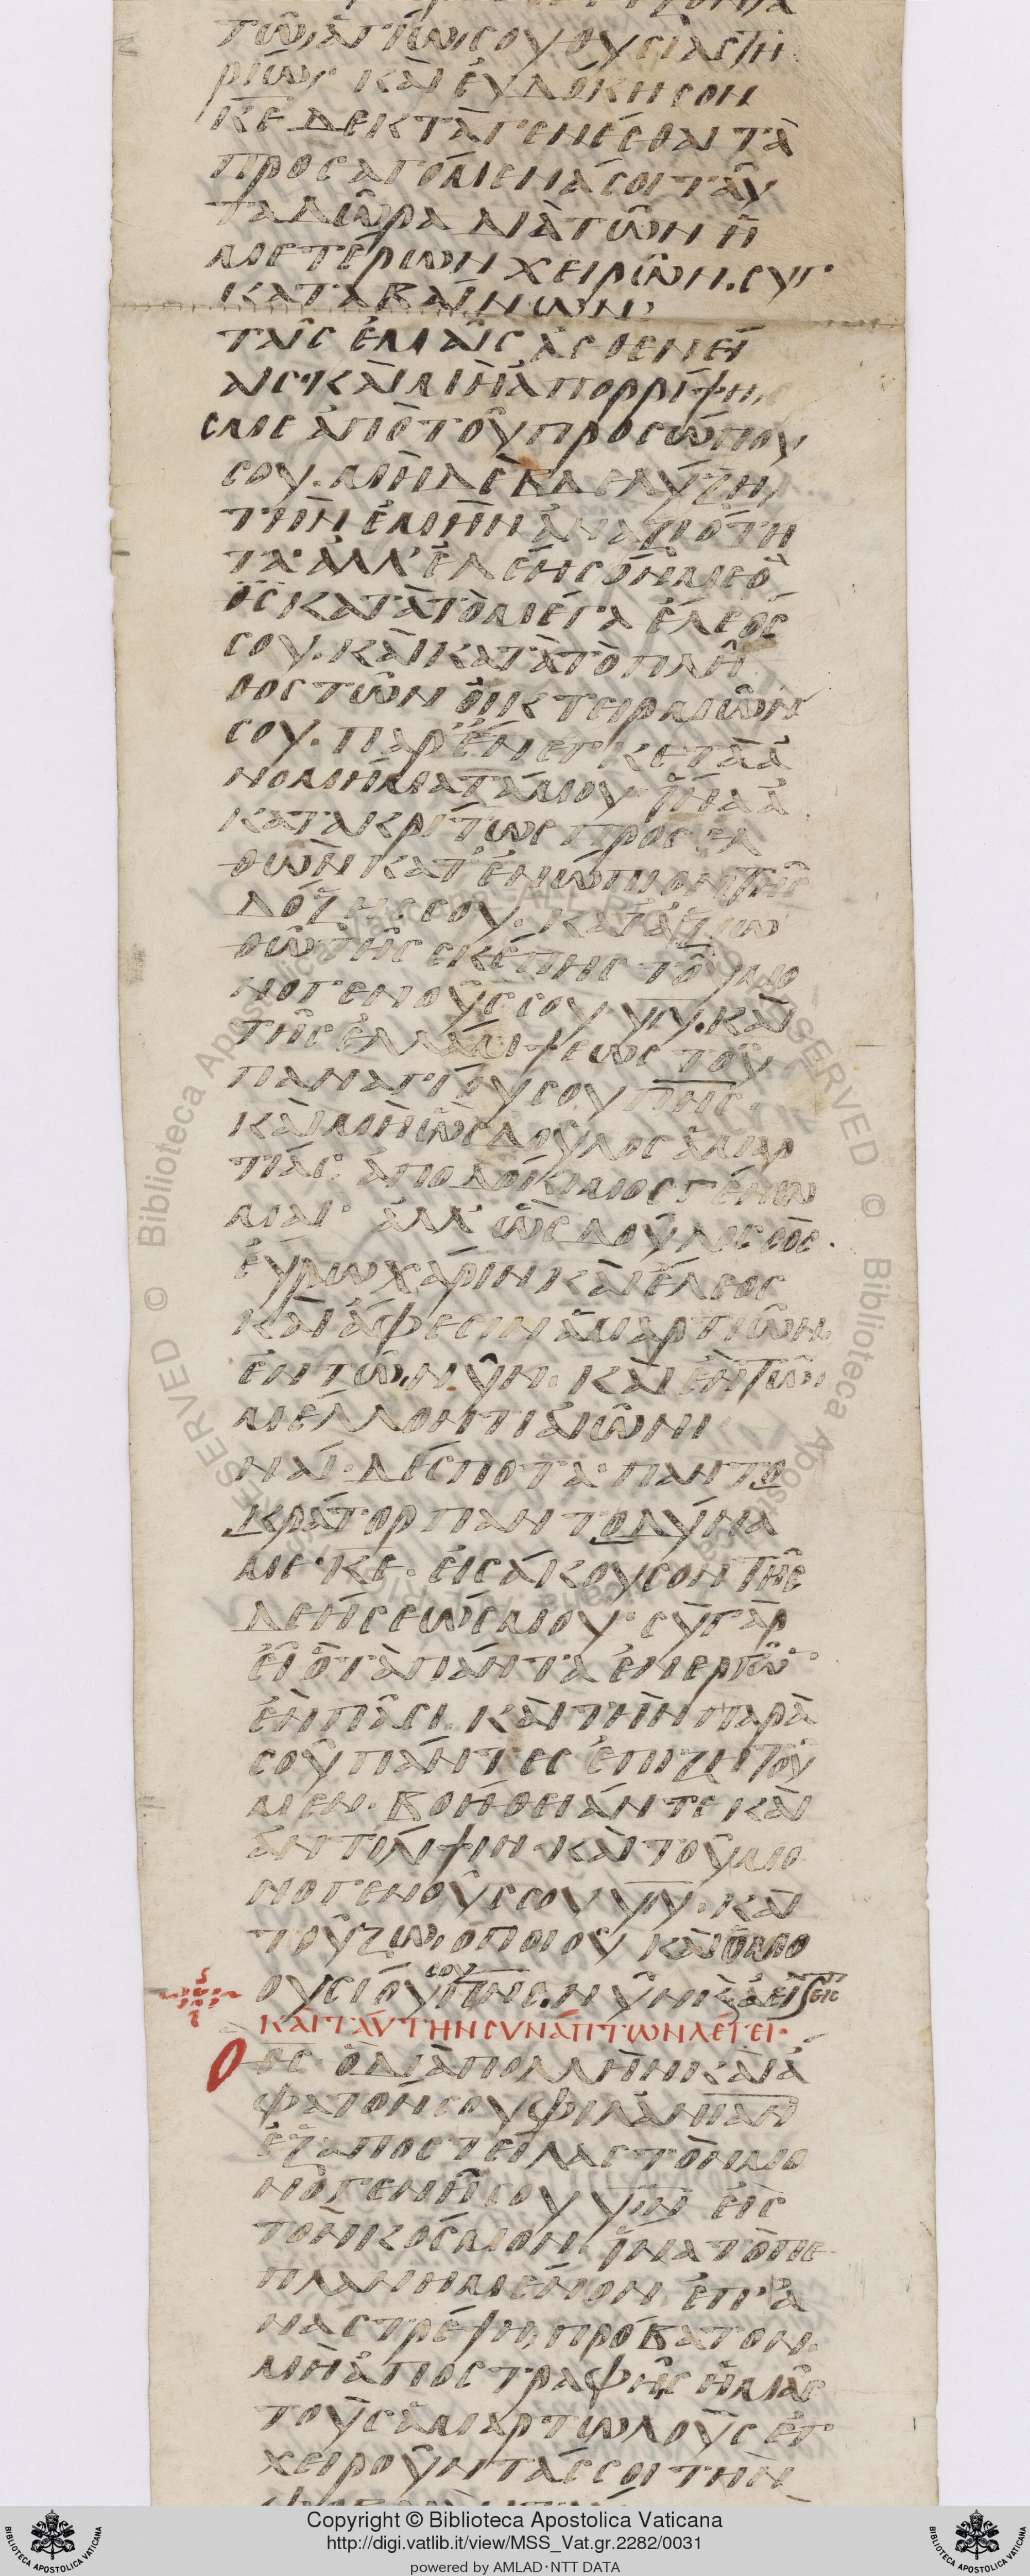 τῶ ἁγίω σου θυσιαστη
ρίω· καὶ ἐυδόκησον
κε δεκτὰ γενέσθαι τὰ
προσαγόμενά σοι ταῦ
τα δῶρα διὰ τῶν ἡ
μετέρων χειρῶν. συγ
καταβαίνων
ταῖς ἐμαῖς ἀσθενεί
αις· καὶ μὴ ἀπορρίψης
με ἀπὸ τοῦ προσώπου
σου. μὴ δὲ βδελύξη
τὴν ἐμὴν ἀναξιότη
τα· ἀλλ' ἐλέησόν με ὁ
θς κατὰ τὸ μέγα ἔλεός
σου. καὶ κατὰ τὸ πλῆ
θος τῶν οἰκτειρμῶν
σου. πάρένεγκε τὰ ἀ
νομήματά μου ἵνα ἀ
κατακρίτως προσελ
θὼν κατενώπιον τῆς
δόξης σου. καταξιω
θῶ τῆς σκέπης τοῦ μο
νογενοῦς σου υἱυ. καὶ
τῆς ἐλλάμψεως τοῦ
παναγίου σου πνς.
καὶ μὴ ὡς δοῦλος ἁμαρ
τίας ἀποδόκιμος γένω
μαι· ἀλλ' ὡς δοῦλος σὸς.
εὕρω χάριν καὶ ἔλεος
καὶ ἄφεσιν ἁμαρτιῶν.
ἐν τῶ νῦν. καὶ ἐν τῶ
μέλλοντι αἰῶνι
ναί. δέσποτα παντο
κράτορ παντοδύνα
με κε. εἰσάκουσον τῆς
δεήσεώς μου· σὺ γὰρ
εἶ ὁ τὰ πάντα ἐνεργῶν
ἐν πᾶσι. καὶ τὴν παρὰ
σοῦ πάντες ἐπιζητοῦ
μεν. βοήθειάν τε καὶ
ἀντίληψιν καὶ τοῦ μο
νογενοῦς σου υἱυ. καὶ
τοῦ ζωοποιοῦ καὶ ὁμο
ουσίου σου πνς. νῦν κ ἀεὶ κ εις
ΚΑΙ ΤΑΥΤΗΝ ΣΥΝΑΠΤΩΝ ΛΕΓΕΙ·
Ο θς ὁ διὰ πολλὴν καὶ ἄ
φατόν σου φιλανίαν
ἐξαποστείλας τὸν μο
νογενῆ σου υἱν εἰς
τὸν κόσμον ἵνα τὸ πε
πλανημένον ἐπα
ναστρέψη πρόβατον.
μὴ ἀποστραφῆς ἡμᾶς
τοὺς ἁμαρτωλοὺς ἐγ
χειροῦντάς σοι τὴν
Copyright © Biblioteca Apostolica Vaticana
http://digi.vatlib.it/view/MSS_Vat.gr.2282/0031
powered by AMLAD·NTT DATA